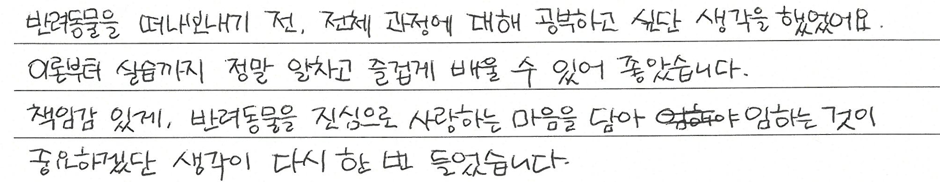 반려동물을 떠나보내기 전, 전체 과정에 대해 공부하고 싶단 생각을 했었어요.
이론부터 실습까지 정말 알차고 즐겁게 배울 수 있어 좋았습니다.
책임감 있게, 반려동물을 진심으로 사랑하는 마음을 담아 임하는 것이
중요하겠단 생각이 다시 한 번 들었습니다.